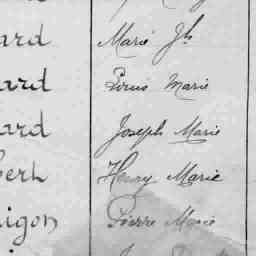 ard Marie Jh
ard Louis Marie
ard Joseph Marie
bert Henry Marie
igon Pierre Marie